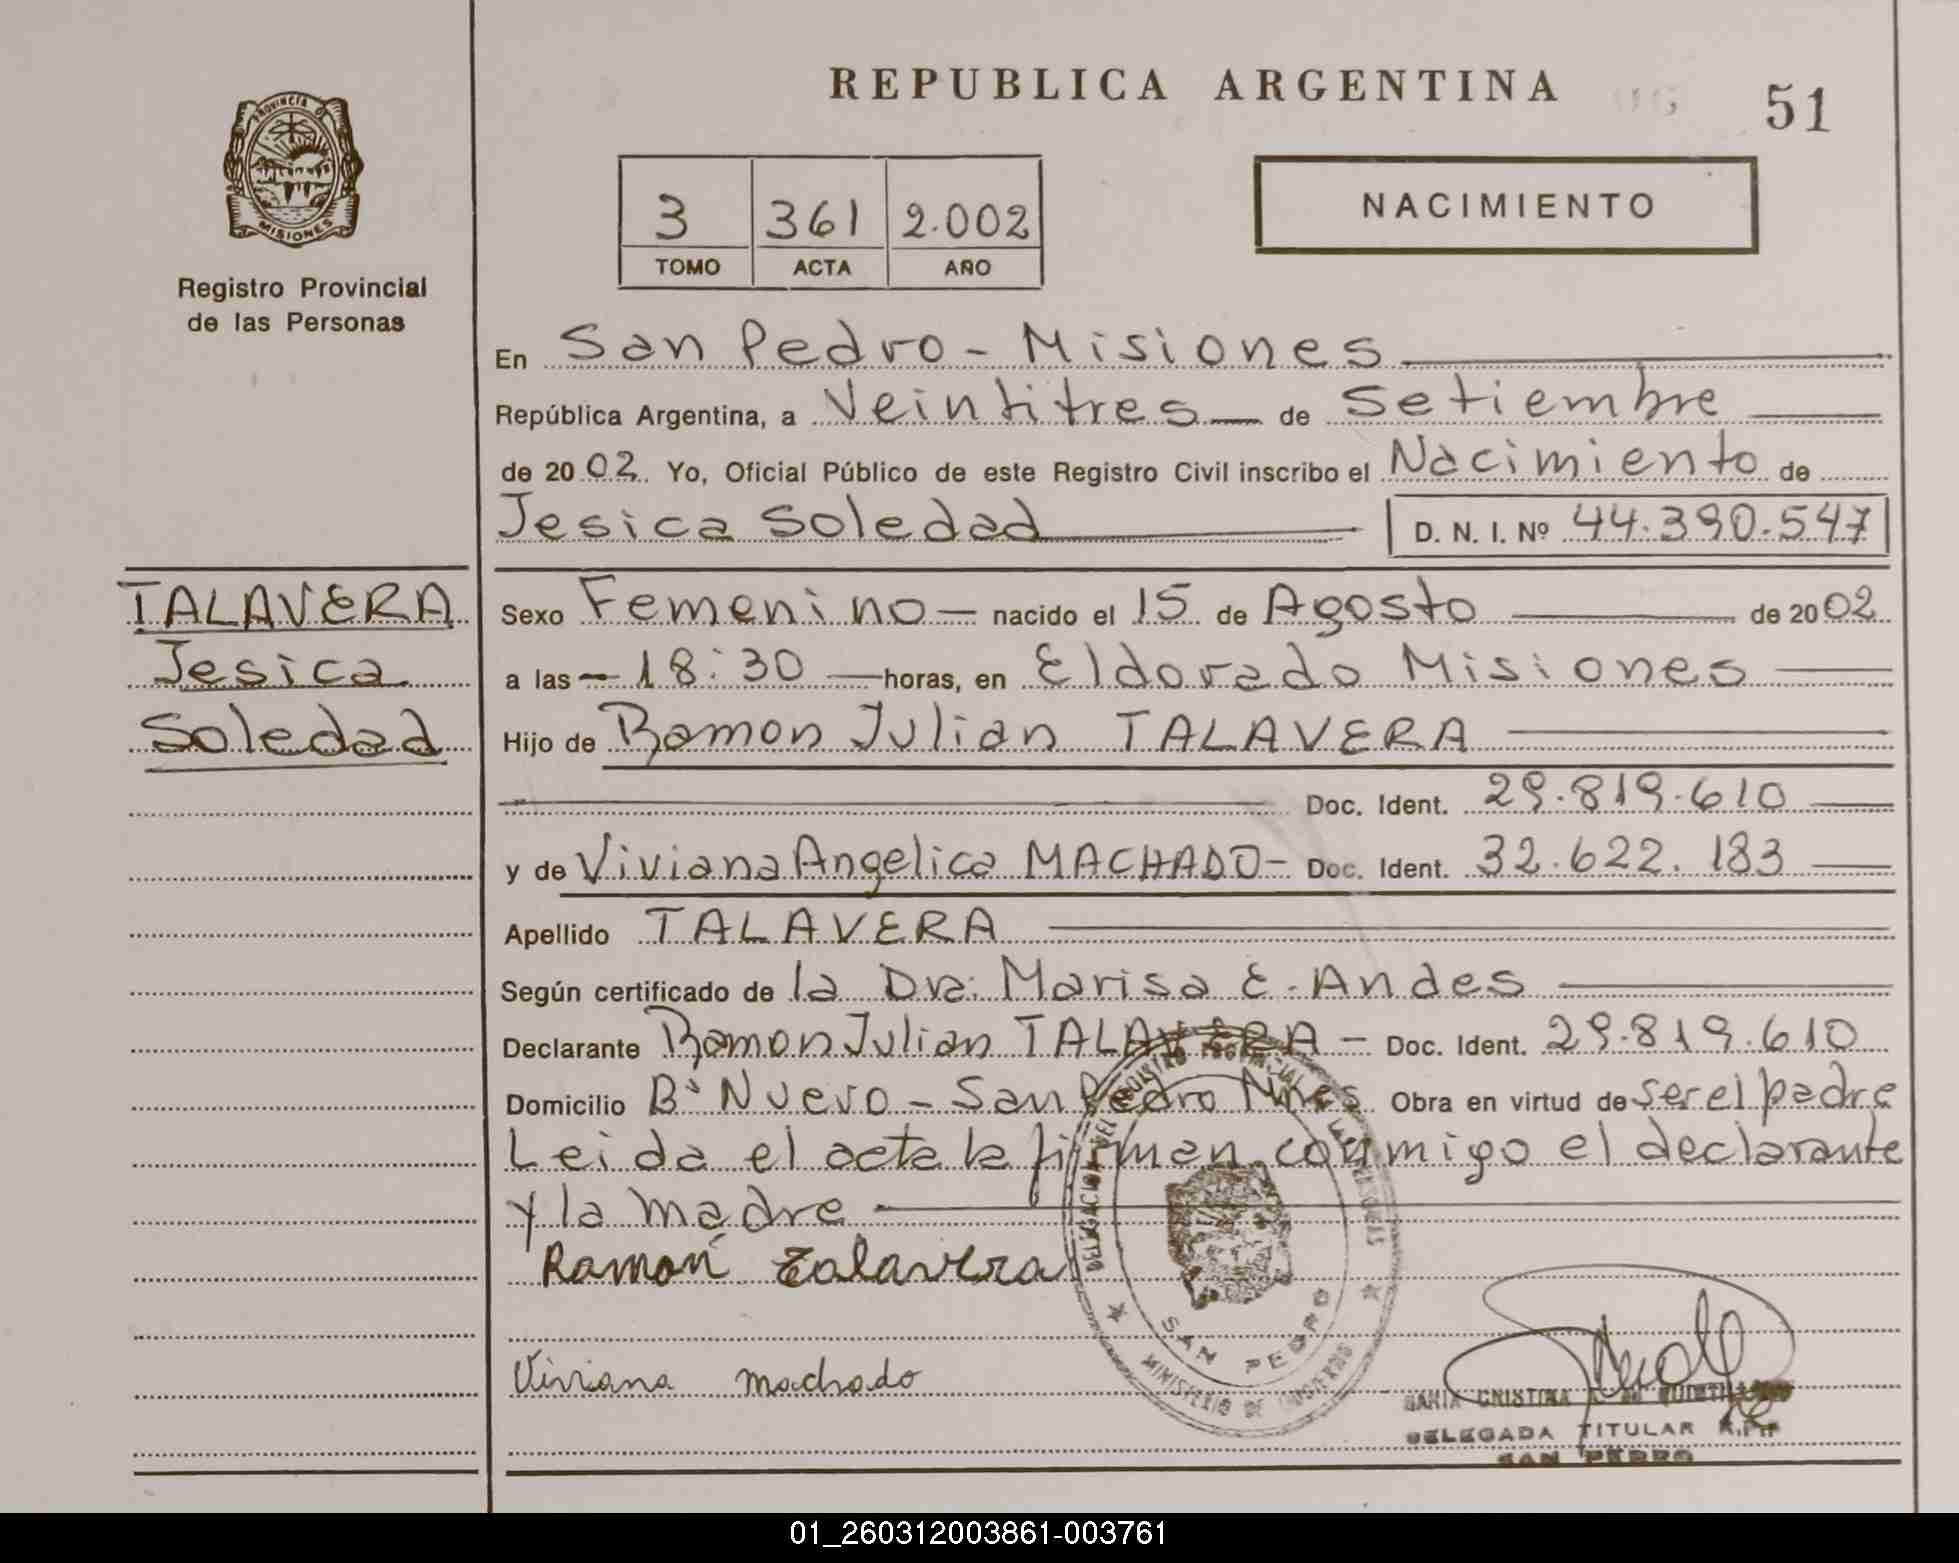 REPUBLICA ARGENTINA
51
PROVINCIA DE
MISIONES
Registro Provincial
de las Personas
3 361 2.002
TOMO ACTA AÑO
NACIMIENTO
En San Pedro - Misiones
República Argentina, a Veintitres de Setiembre
de 2002. Yo, Oficial Público de este Registro Civil inscribo el Nacimiento de
Jesica Soledad D. N. I. Nº 44.390.547
TALAVERA
Jesica
Soledad
Sexo Femenino nacido el 15 de Agosto de 2002
a las 18:30 horas, en Eldorado Misiones
Hijo de Ramon Julian TALAVERA
Doc. Ident. 29.819.610
y de Viviana Angelica MACHADO- Doc. Ident. 32.622.183
Apellido TALAVERA
Según certificado de la Dra. Marisa E. Andes
Declarante Ramon Julian TALAVERA - Doc. Ident. 29.819.610
Domicilio Bº Nuevo - San Pedro Mnes. Obra en virtud de ser el padre
Leida el acta la firman conmigo el declarante
y la madre
Ramón Talavera
Viviana machado
DELEGACION DEL REGISTRO PROVINCIAL DE LAS PERSONAS
SAN PEDRO
MINISTERIO DE GOBIERNO
MARIA CRISTINA
DELEGADA TITULAR R.P.P.
SAN PEDRO
01_260312003861-003761